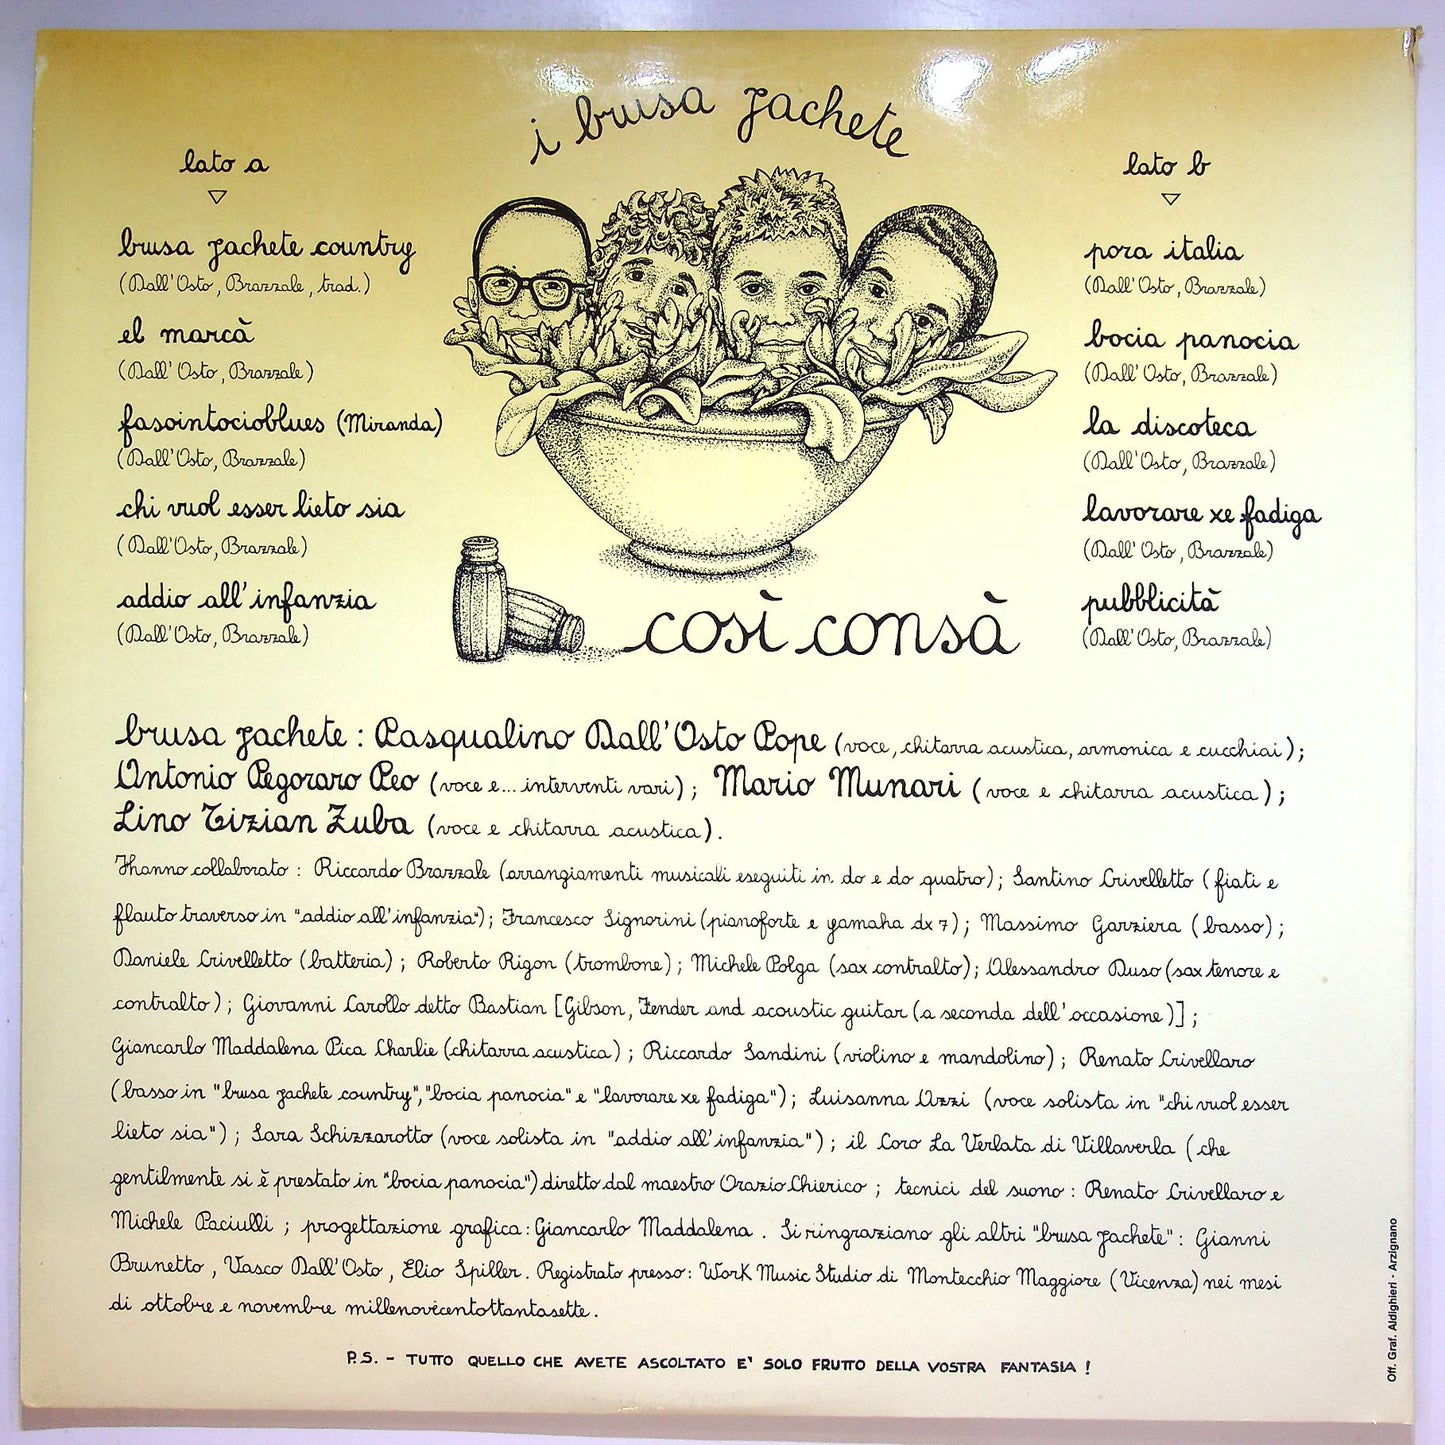 i brusa jachete
lato a
brusa jachete country
(Dall'Osto, Brazzale, trad.)
el marcà
(Dall'Osto, Brazzale)
fasointocioblues (Miranda)
(Dall'Osto, Brazzale)
chi vuol esser lieto sia
(Dall'Osto, Brazzale)
addio all'infanzia
(Dall'Osto, Brazzale)
lato b
pora italia
(Dall'Osto, Brazzale)
bocia panocia
(Dall'Osto, Brazzale)
la discoteca
(Dall'Osto, Brazzale)
lavorare xe fadiga
(Dall'Osto, Brazzale)
pubblicità
(Dall'Osto, Brazzale)
così consà
brusa jachete : Pasqualino Dall'Osto Pope (voce, chitarra acustica, armonica e cucchiai);
Antonio Pegoraro Peo (voce e... interventi vari); Mario Munari (voce e chitarra acustica);
Lino Tizian Zuba (voce e chitarra acustica).
Hanno collaborato : Riccardo Brazzale (arrangiamenti musicali eseguiti in do e do quatro); Santino Crivelletto (fiati e
flauto traverso in "addio all'infanzia"); Francesco Signorini (pianoforte e yamaha dx 7); Massimo Garziera (basso);
Daniele Crivelletto (batteria); Roberto Rigon (trombone); Michele Polga (sax contralto); Alessandro Duso (sax tenore e
contralto); Giovanni Carollo detto Bastian [Gibson, Fender and acoustic guitar (a seconda dell'occasione)];
Giancarlo Maddalena Pica Charlie (chitarra acustica); Riccardo Sandini (violino e mandolino); Renato Crivellaro
(basso in "brusa jachete country", "bocia panocia" e "lavorare xe fadiga"); Luisanna Azzi (voce solista in "chi vuol esser
lieto sia"); Sara Schizzarotto (voce solista in "addio all'infanzia"); il Coro La Verlata di Villaverla (che
gentilmente si è prestato in "bocia panocia") diretto dal maestro Orazio Chierico ; tecnici del suono : Renato Crivellaro e
Michele Paciulli ; progettazione grafica : Giancarlo Maddalena . Si ringraziano gli altri "brusa jachete" : Gianni
Brunetto , Vasco Dall'Osto , Elio Spiller. Registrato presso : Work Music Studio di Montecchio Maggiore (Vicenza) nei mesi
di ottobre e novembre millenovecentottantasette.
P.S. - TUTTO QUELLO CHE AVETE ASCOLTATO E' SOLO FRUTTO DELLA VOSTRA FANTASIA !
Off. Graf. Aldighieri - Arzignano